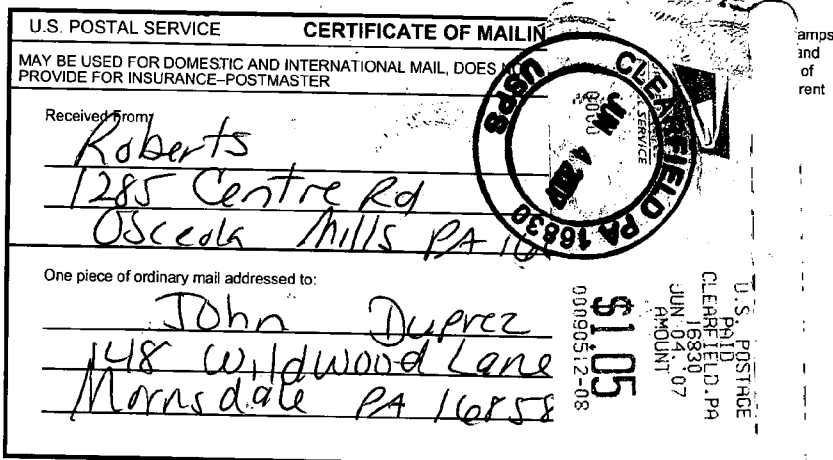 U.S. POSTAL SERVICE CERTIFICATE OF MAILIN
MAY BE USED FOR DOMESTIC AND INTERNATIONAL MAIL, DOES
PROVIDE FOR INSURANCE–POSTMASTER
Received From:
Roberts
1285 Centre Rd
Osceola Mills PA 16
One piece of ordinary mail addressed to:
John Duprez
148 Wildwood Lane
Morrisdale PA 16858
USPS
CLEARFIELD PA 16830
JUN 4
SERVICE
0000
U.S. POSTAGE
PAID
CLEARFIELD.PA
16830
JUN 04,'07
AMOUNT
$1.05
00090512-08
amps
and
of
rent